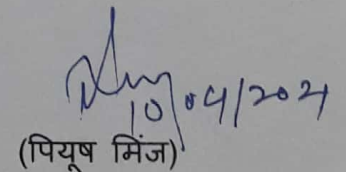 10/04/2021
(पियूष मिंज)